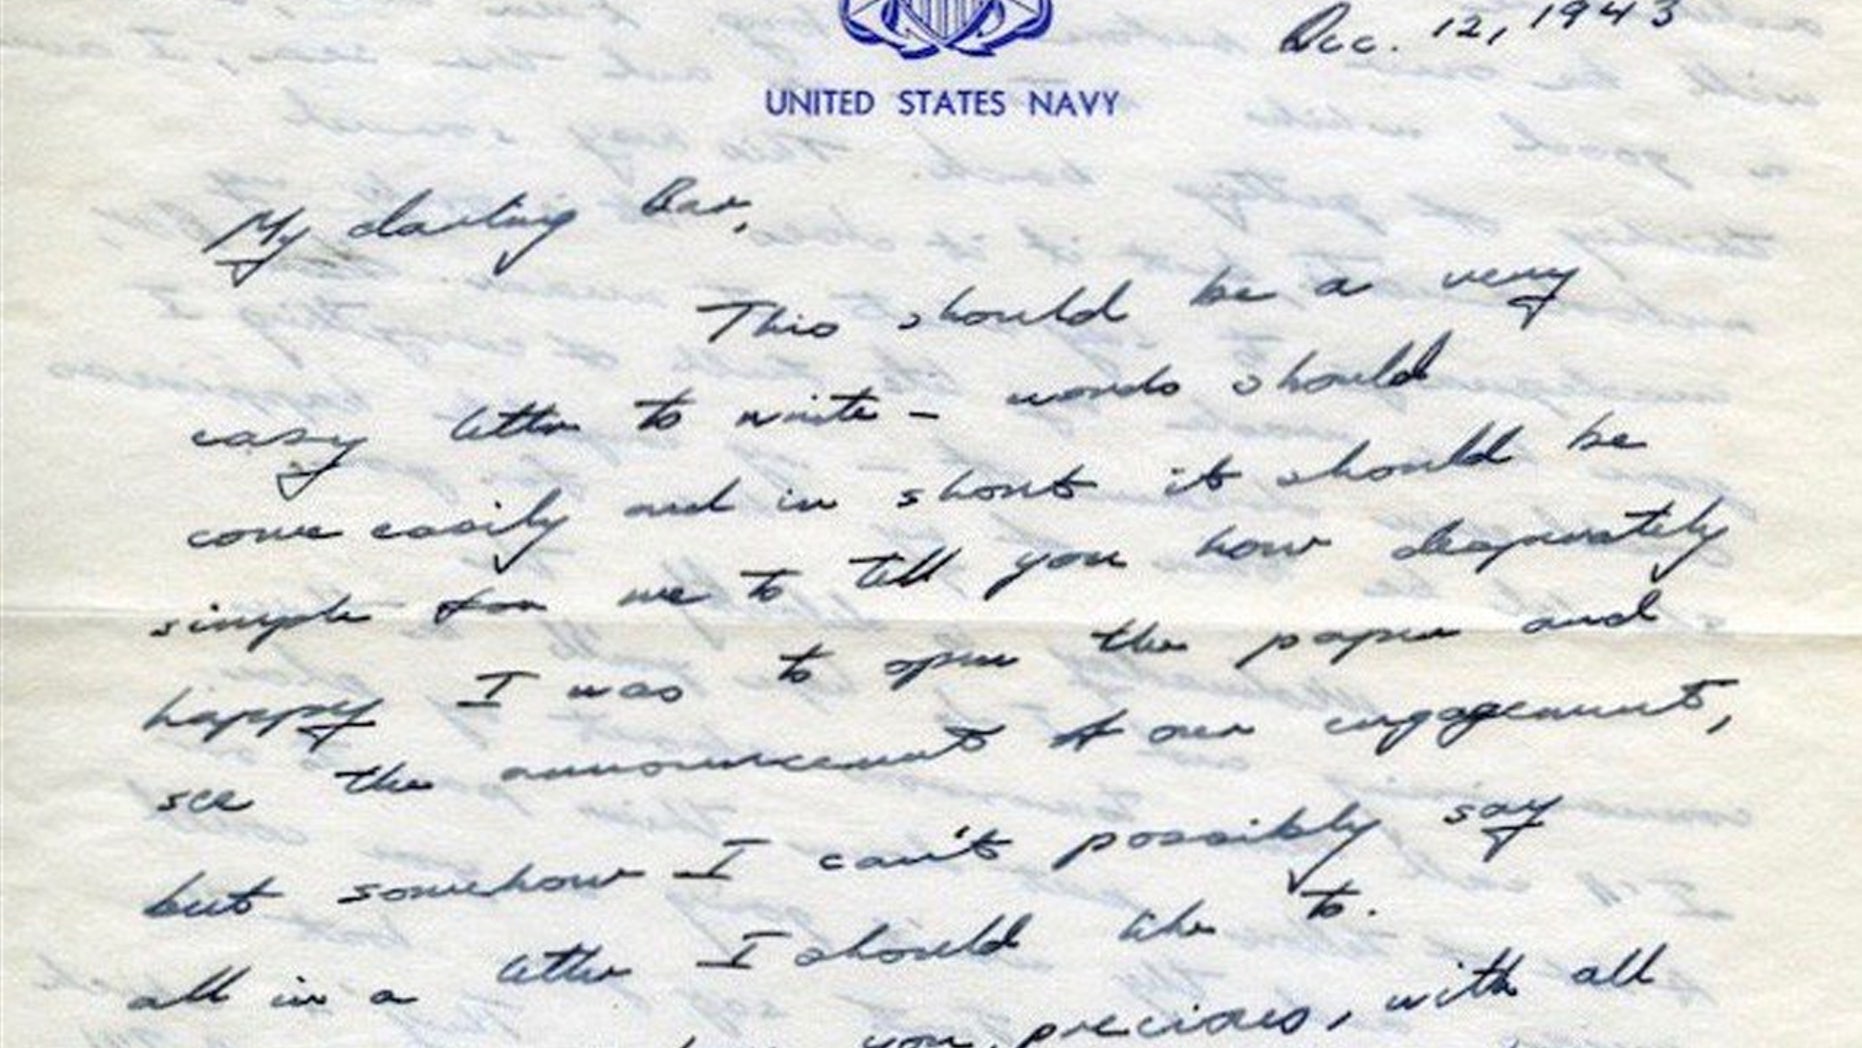 Dec. 12, 1943
UNITED STATES NAVY
My darling Bar,
This should be a very
easy letter to write – words should
come easily and in short it should be
simple for me to tell you how desperately
happy I was to open the paper and
see the announcement of our engagement,
but somehow I can't possibly say
all in a letter I should like to.
you, precious, with all